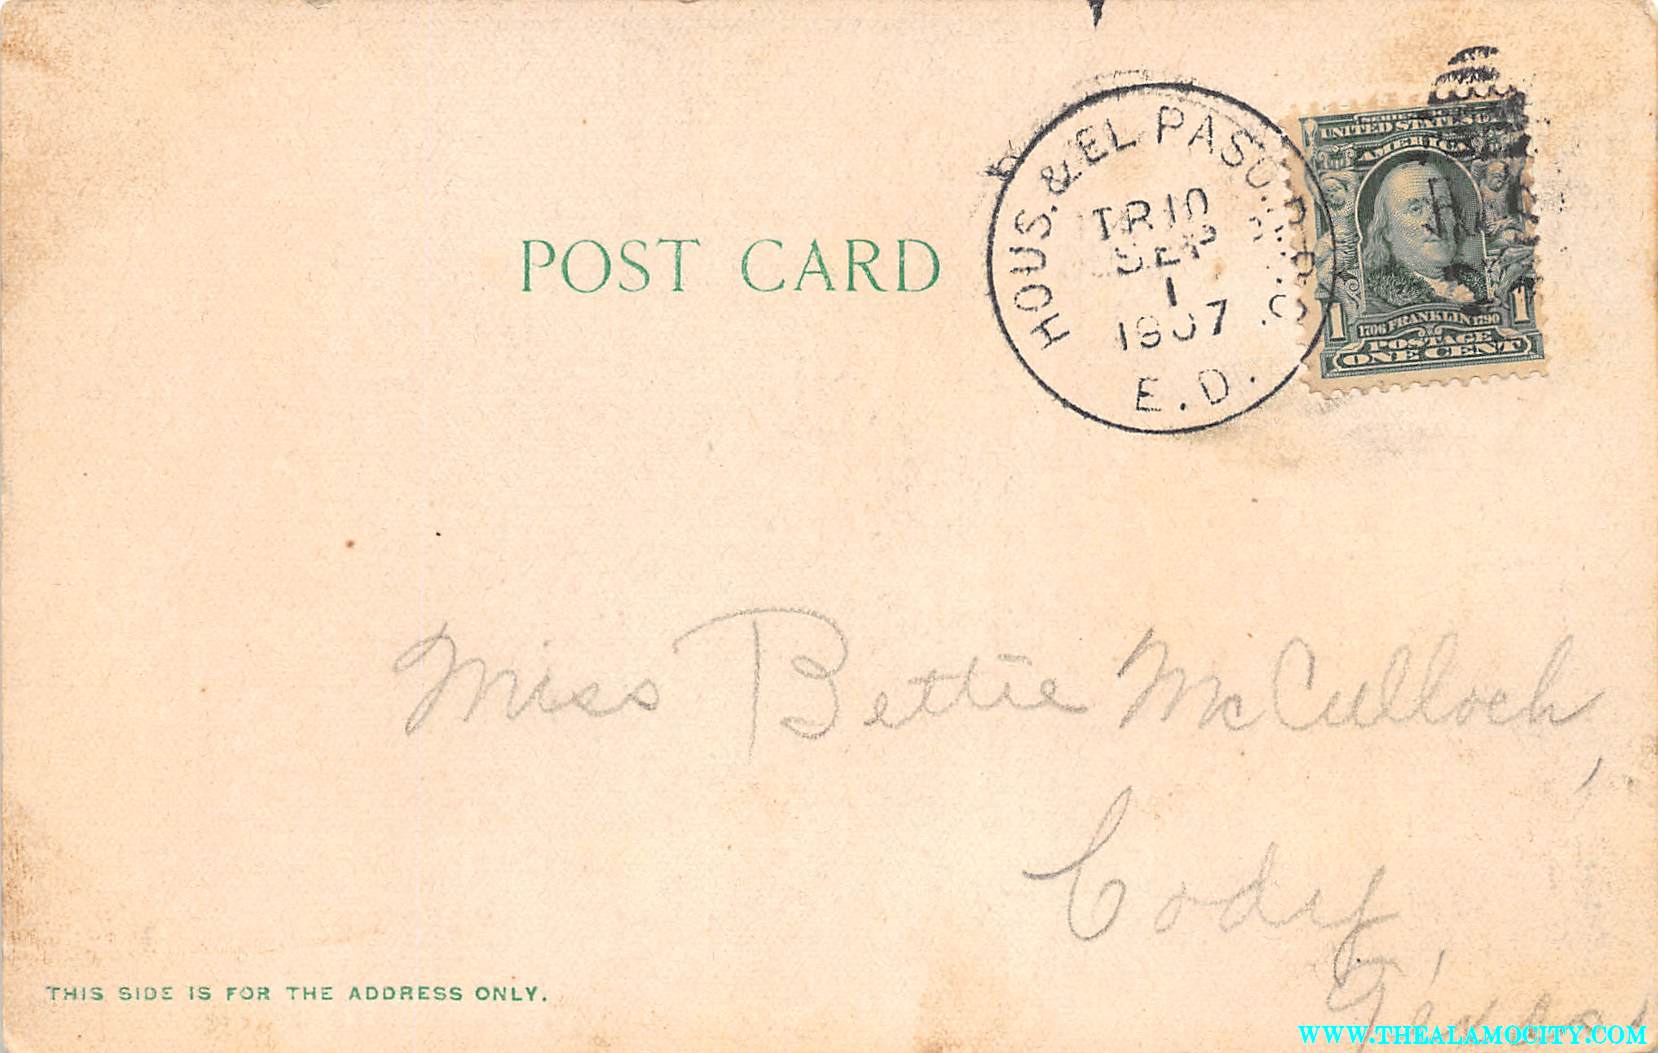 POST CARD
HOUS. & EL PASO. R.P.O.
TR 10
SEP
1
1907
E.D.
UNITED STATES OF
AMERICA
1706 FRANKLIN 1790
1 POSTAGE 1
ONE CENT
Miss Bettie McCulloch,
Cody,
Texas
THIS SIDE IS FOR THE ADDRESS ONLY.
WWW.THEALAMOCITY.COM